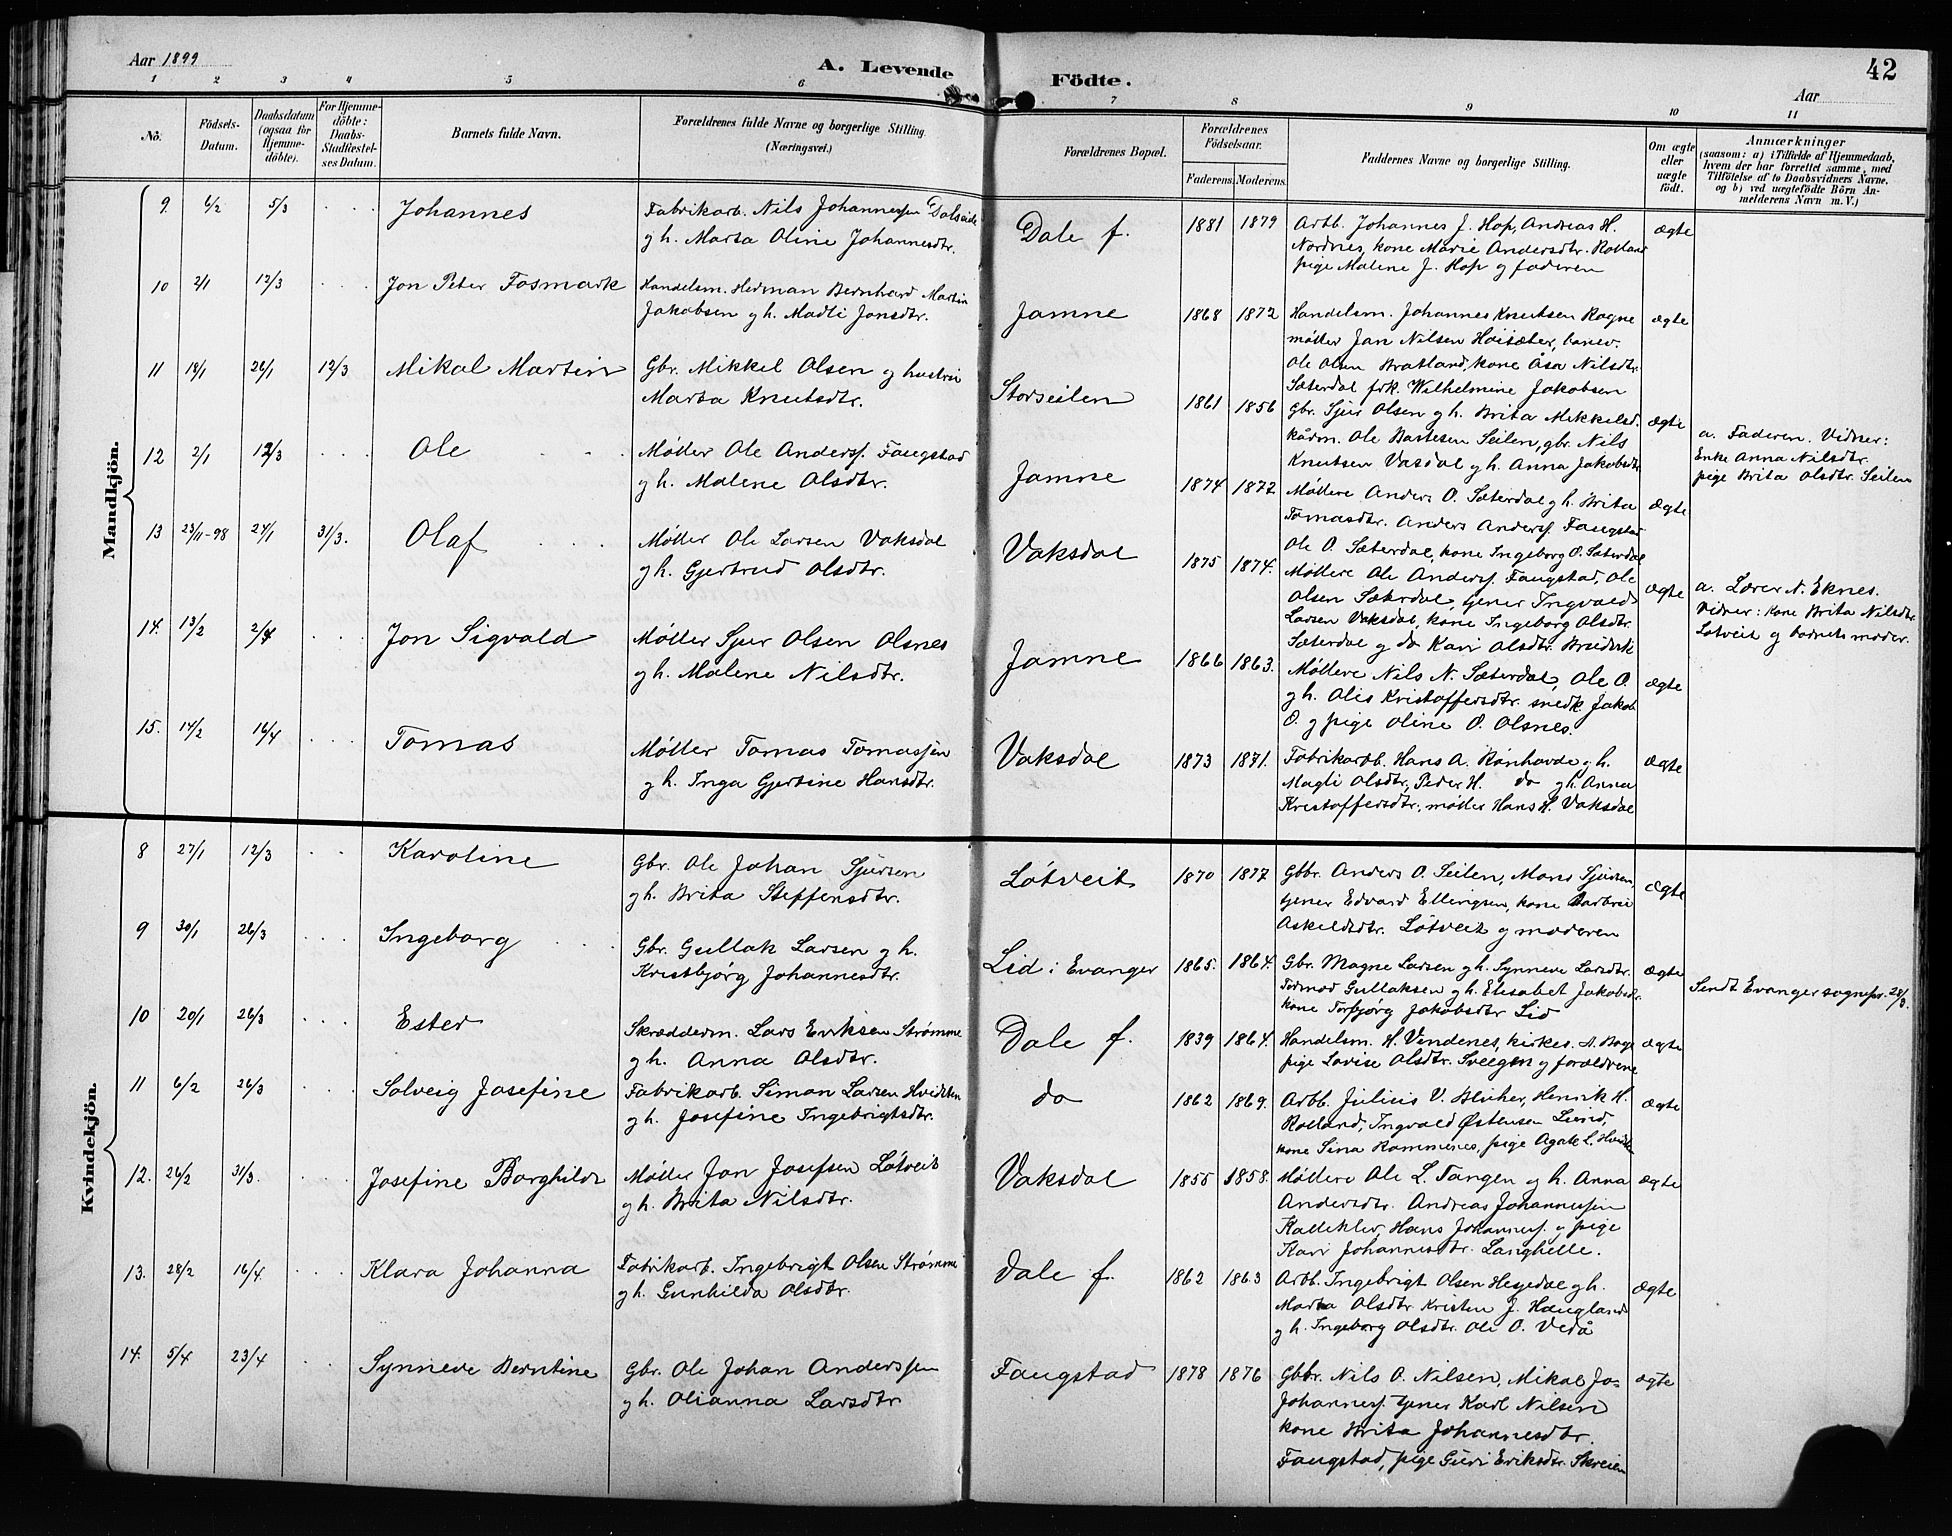 Aar 1899
A. Levende Födte.
42
Aar
1 2 3 4 5 6 7 8 9 10 11
No.
Födsels-
Datum.
Daabsdatum
(ogsaa for
Hjemme-
döbte).
For Hjemme-
döbte:
Daabs-
Stadfæstel-
ses Datum.
Barnets fulde Navn.
Forældrenes fulde Navne og borgerlige Stilling.
(Næringsvei.)
Forældrenes Bopæl.
Forældrenes
Födselsaar.
Faderens. Moderens.
Faddernes Navne og borgerlige Stilling.
Om ægte
eller
uægte
födt.
Anmærkninger
(saasom: a) i Tilfælde af Hjemmedaab,
hvem der har forrettet samme, med
Tilföielse af to Daabsvidners Navne,
og b) ved uægtefödte Börn An-
melderens Navn m. V.)
Mandkjön.
9. 6/2 5/3 Johannes
Fabrikarb. Nils Johannessen Dalseide
gh. Marta Oline Johannesdtr.
Dale f. 1881 1879
Arbb. Johannes J. Hop, Andreas H.
Nordnes, kone Marie Andersdtr. Rolland
pige Malene J. Hop og faderen
ægte
10 2/1 12/3 Jon Peter Fosmark
Handelsm. Herman Bernhard Martin
Jakobsen gh. Madli Jonsdtr.
Jamne 1868 1872
Handelsm. Johannes Knutsen Rogne
møller Jan Nilsen Høisæter, banev.
Ole Olsen Bratland, kone Åsa Nilsdtr.
Sæterdal frk. Wilhelmine Jakobsen
ægte
11 18/1 26/1 12/3 Mikal Martin
Gbr. Mikkel Olsen og hustru
Marta Knutsdtr.
Storseilen 1861 1856
Gbr. Sjur Olsen gh. Brita Mikkelsd.
kårm. Ole Bartesen Seilen, gbr. Nils
Knutsen Vasdal gh. Anna Jakobsdtr
ægte
a. Faderen. Vidner:
Enke Anna Nilsdtr.
pige Brita Olsdtr. Seilen
12 2/1 12/3 Ole
Møller Ole Anderss. Faugstad
gh. Malene Olsdtr.
Jamne 1874 1872
Møllere Anders O. Sæterdal gh. Brita
Tomasdtr. Anders Anderss. Faugstad
Ole O. Sæterdal, kone Ingeborg O. Sæterdal
ægte
13 23/11-98 24/1 31/3. Olaf
Møller Ole Larsen Vaksdal
gh. Gjertrud Olsdtr.
Vaksdal 1875 1874.
Møllere Ole Anderss. Faugstad, Ole
Olsen Sæterdal, tjener Ingvald
Larsen Vaksdal, kone Ingeborg Olsdtr.
Sæterdal og do Kari Olsdtr.
ægte
a. Lærer N. Eknes.
Vidner: kone Brita Nilsdtr.
Løtveit og barnets moder.
14. 13/2 2/4 Jon Sigvald
Møller Sjur Olsen Olsnes
gh. Malene Nilsdtr.
Jamne 1866 1863.
Møllere Nils N. Sæterdal, Ole O.
gh. Olis Kristoffersdtr. snedk. Jakob
O. og pige Oline O. Olsnes.
ægte
15. 14/2 16/4 Tomas
Møller Tomas Tomassen
gh. Inga Gjertine Hansdtr.
Vaksdal 1873 1871.
Fabrikarb. Hans A. Rønhovde gh.
Magli Olsdtr, Peder H. do gh. Anna
Kristoffersdtr, møller Hans H. Vaksdal
ægte
Kvindekjön.
8 27/1 12/3 Karoline
Gbr. Ole Johan Sjursen
gh. Brita Steffensdtr.
Løtveit 1870 1877
Gbbr. Anders O. Seilen, Mons Sjursen,
tjener Edvard Ellingsen, kone Barbru
Askildsdtr. Løtveit og moderen
ægte
9 30/1 26/3 Ingeborg
Gbr. Gullak Larsen gh.
Kristbjörg Johannesdtr.
Lid i Evanger 1865. 1864.
Gbr. Magne Larsen gh. Synneve Larsdtr.
Tormod Gullaksen gh. Elisabet Jakobsdtr.
kone Torbjörg Jakobsdtr Lid
ægte
Sendt Evanger sognepr. 28/3.
10 20/1 26/3 Ester
Skrædderm. Lars Eriksen Strømme
gh. Anna Olsdtr.
Dale f. 1839 1864.
Handelsm. H. Vindenes, kirkes. A. Boge
pige Lovise Olsdtr. Sveegen og forældrene
ægte
11 6/2 26/3 Solveig Josefine
Fabrikarb. Simon Larsen Hvidsten
gh. Josefine Ingebrigtsdtr.
do 1862 1869.
Arbb. Julius V. Blüher, Henrik H.
Rolland, Ingvald Østensen Lund,
kone Sina Rammenes, pige Agate L. Hvidsten
ægte
12. 26/2 31/3. Josefine Borghild
Møller Jon Josefsen Løtveit
gh. Brita Nilsdtr.
Vaksdal 1855 1858.
Møllere Ole L. Tangen gh. Anna
Andersdtr. Andreas Johannessen
Kalleklev, Hans Johanness. og pige
Kari Johannesdtr. Langhelle.
ægte
13. 28/2 16/4. Klara Johanna
Fabrikarb. Ingebrigt Olsen Strømme
gh. Gunhilda Olsdtr.
Dale f. 1862 1863
Arbb. Ingebrigt Olsen Hesjedal gh.
Marta Olsdtr Kristen J. Haugland
gh. Ingeborg Olsdtr. Ole O. Vedå
ægte
14. 5/4 23/4 Synneve Berntine
Gbr. Ole Johan Anderssen
gh. Olianna Larsdtr
Faugstad 1878 1876
Gbbr. Nils O. Nilsen, Mikal Jo-
Johanness. tjener Karl Nilsen
kone Brita Johannesdtr.
Faugstad, pige Guri Eriksdtr. Skreien
ægte